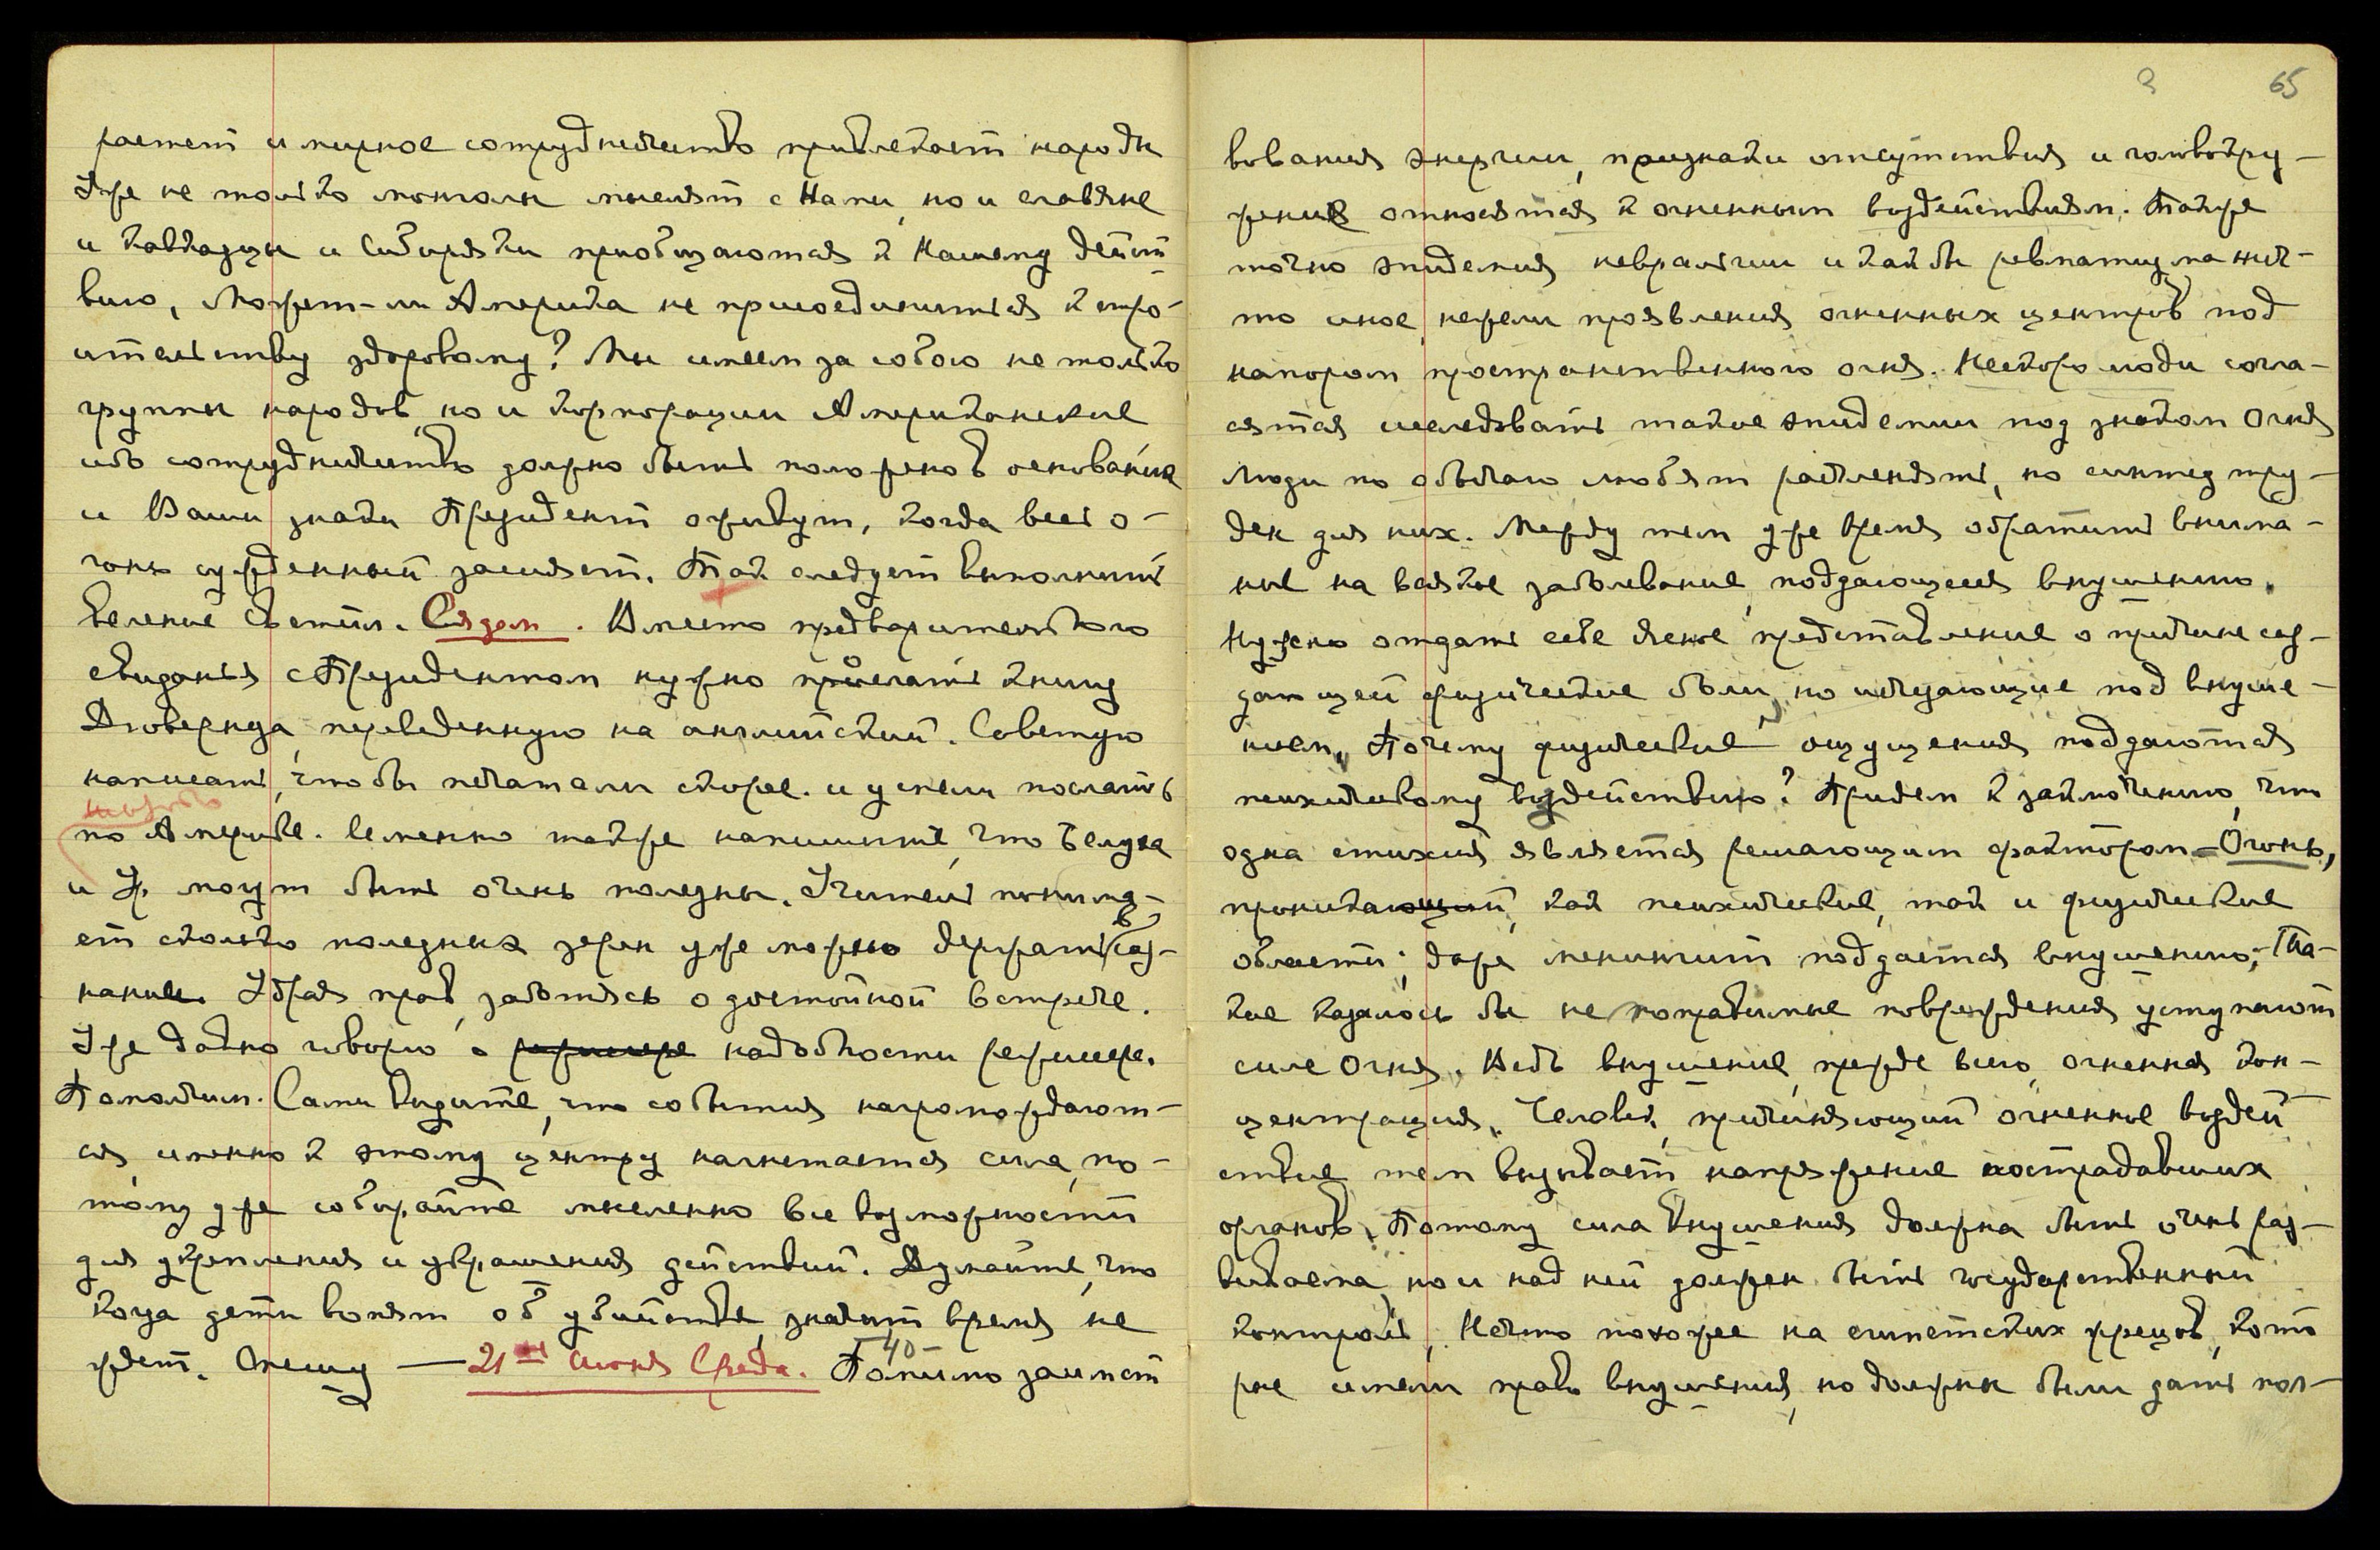 растет и мирное сотрудничество привлекает народы
Уже не только монголы мыслят с Нами, но и славяне
и кавказцы и Сибиряки приобщаются к Нашему дейст
вию, Может-ли Америка не присоединиться к стро-
ительству здоровому? Мы имеем за собою не только
группы народов, но и корпорации Американские
ибо сотрудничество должно быть положено в основание
и Ваши знаки Президент оживут, когда весь о-
гонь сужденный засияет. Так следует выполнить
веление Светил. Сядем. Вместо предварительного
свиданья с Президентом нужно прислать книгу
Дювернуа переведенную на английский. Советую
написать, чтобы печатали скорее. и успели послать в
по Америке. Именно также напишите, что Белуха
и Ур. могут быть очень полезны. Учитель понима-
ет сколько полезных зерен уже можно держать в соз-
нании. Удрая прав, заботясь о достойной встрече.
Уже давно говорю о надобности режиссера.
Помолчим. Сами видите, что события нагромождают-
ся именно к этому центру нагнетается сила, по-
тому уже собирайте мысленно все возможности
для укрепления и украшения действий. Думайте, что
когда дети вопят об убийстве, значит время не
ждет. Спешу — 21 Июня Среда. 40 Помимо заимст
3 65
вования энергии, признаки отсутствия и головокру-
жение относятся к огненным воздействиям. Также
точно эпидемия невралгии и как бы ревматизма нич-
то иное, нежели проявления огненных центров под
напором пространственного огня. Нескоро люди согла-
сятся исследовать такие эпидемии под знаком Огня
Люди по обычаю любят расчленять, но синтез тру-
ден для них. Между тем уже время обратить внима-
ние на всякое заболевание, поддающееся внушению.
Нужно отдать себе ясное представление о причине соз-
дающей физические боли, но исчезающие под внуше-
нием. Почему физические ощущения поддаются
психическому воздействию? Придем к заключению, что
одна стихия является решающим фактором — Огонь,
проникающий, как психические, так и физические
области; даже менингит поддается внушению; Та-
кие казалось бы не поправимые повреждения уступают
силе Огня. Ведь внушение, прежде всего, огненная кон-
центрация. Человек, причиняющий огненное воздей
ствие тем вызывает напряжение пострадавших
органов. Потому сила внушения должна быть очень раз-
виваема, но и над ней должен быть государственный
контроль. Нечто похожее на египетских жрецов, кото
рые имели право внушения, но должны были дать пол-